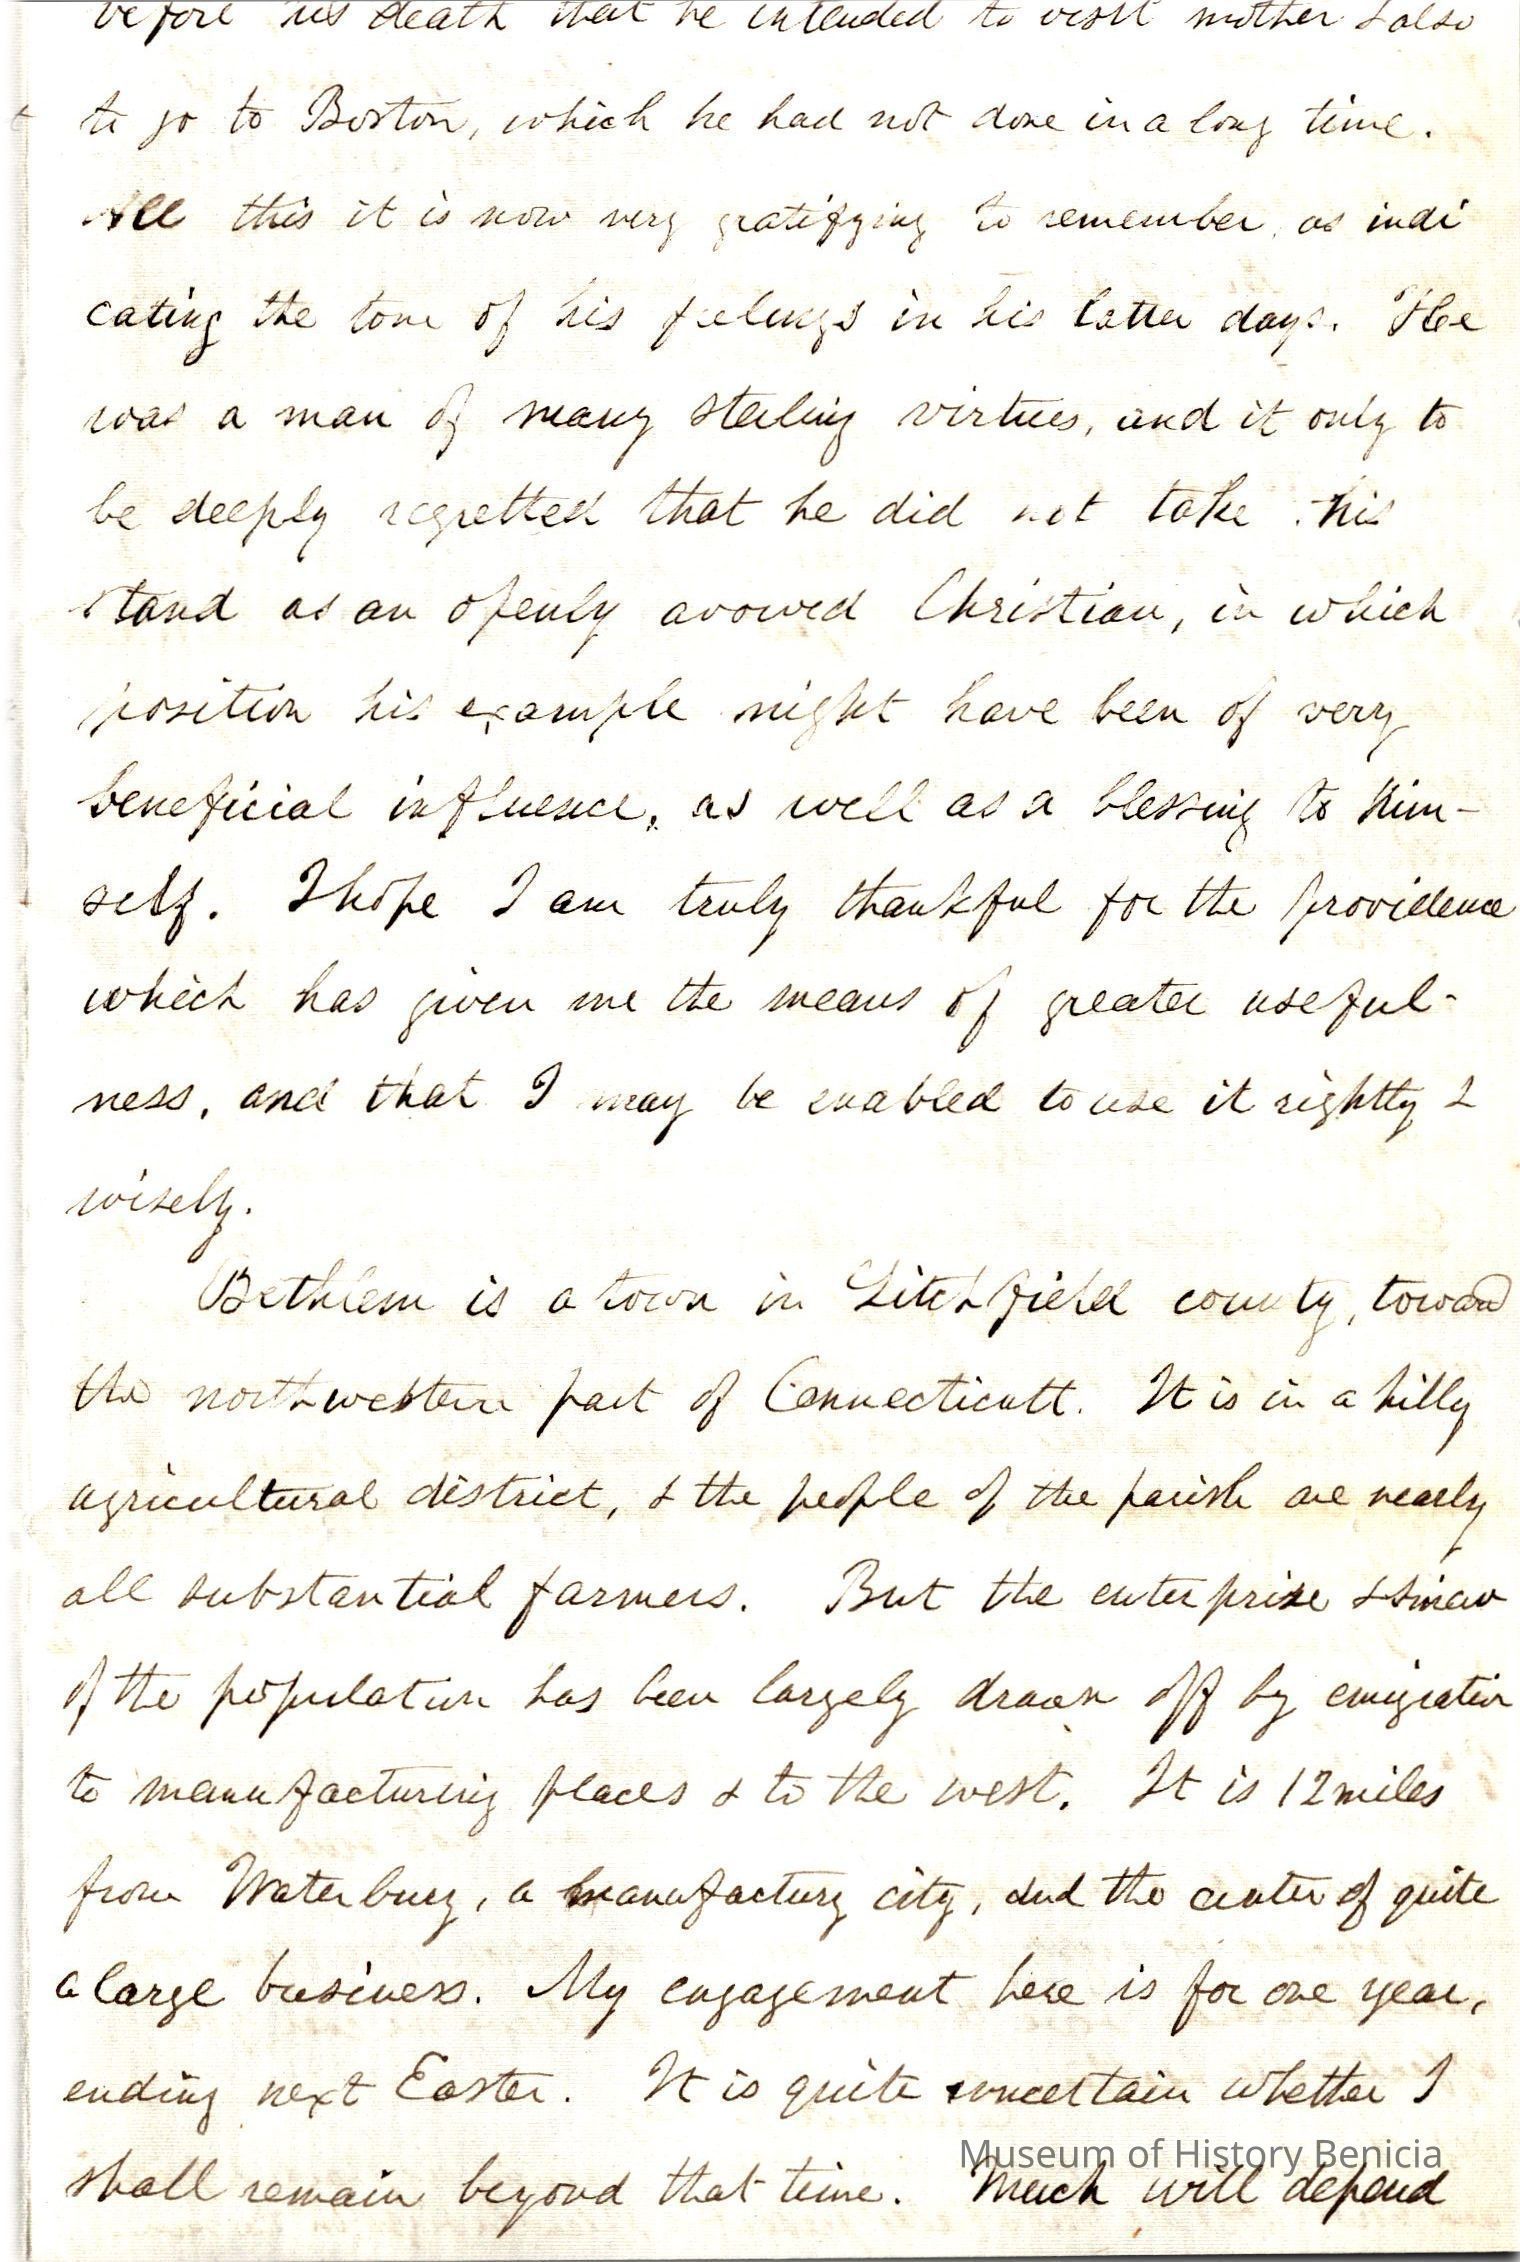 before his death that he intended to visit mother & also
to go to Boston, which he had not done in a long time.
All this it is now very gratifying to remember, as indi
cating the tone of his feelings in his latter days. He
was a man of many sterling virtues, and it only to
be deeply regretted that he did not take his
stand as an openly avowed Christian, in which
position his example might have been of very
beneficial influence, as well as a blessing to him-
self. I hope I am truly thankful for the providence
which has given me the means of greater useful-
ness, and that I may be enabled to use it rightly &
wisely.
Bethlem is a town in Litchfield county, toward
the northwestern part of Connecticutt. It is in a hilly
agricultural district, & the people of the parish are nearly
all substantial farmers. But the enterprize & sinew
of the population has been largely drawn off by emigration
to manufacturing places & to the west. It is 12 miles
from Waterbury, a manufactury city, and the center of quite
a large business. My engagement here is for one year,
ending next Easter. It is quite uncertain whether I
shall remain beyond that time. Much will depend
Museum of History Benicia